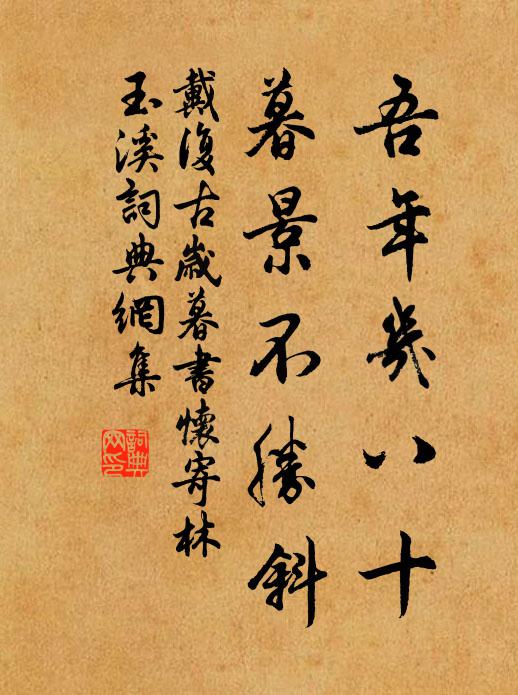 吾年幾八十
暮景不勝斜
戴復古歲暮書懷寄林
玉溪詞典網集
詞典網印